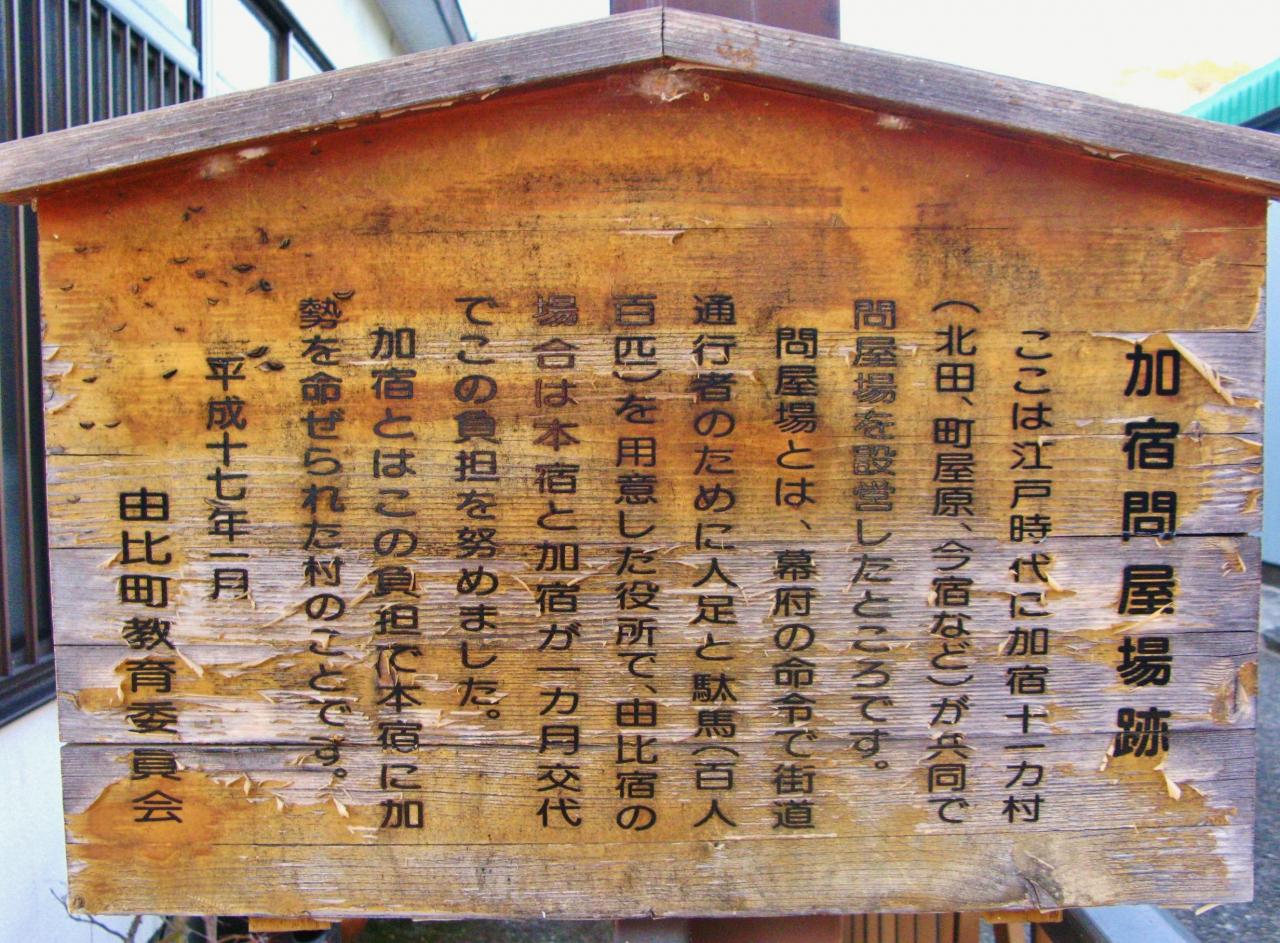 加宿問屋場跡
ここは江戸時代に加宿十一カ村
(北田、町屋原、今宿など)が共同で
問屋場を設営したところです。
問屋場とは、幕府の命令で街道
通行者のために人足と駄馬(百人
百匹)を用意した役所で、由比宿の
場合は本宿と加宿が一カ月交代
でこの負担を努めました。
加宿とはこの負担で本宿に加
勢を命ぜられた村のことです。
平成十七年一月
由比町教育委員会